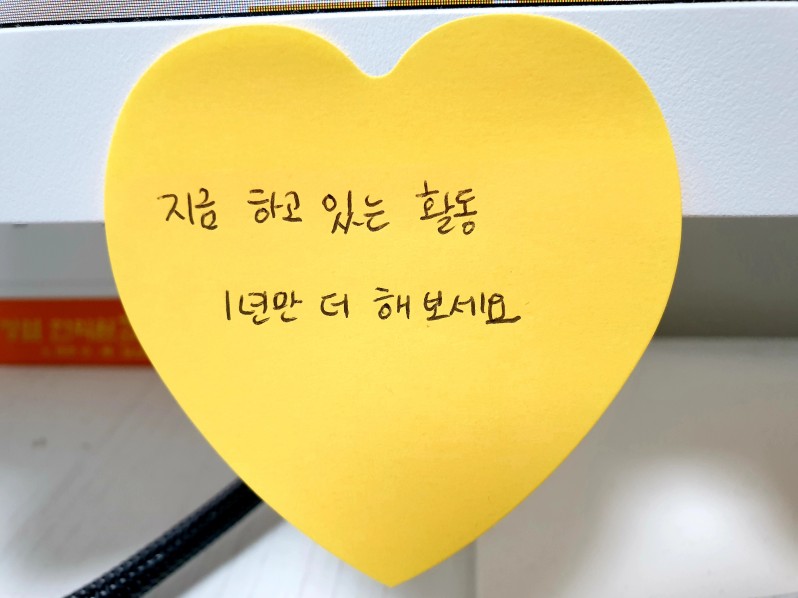 지금 하고 있는 활동
1년만 더 해보세요